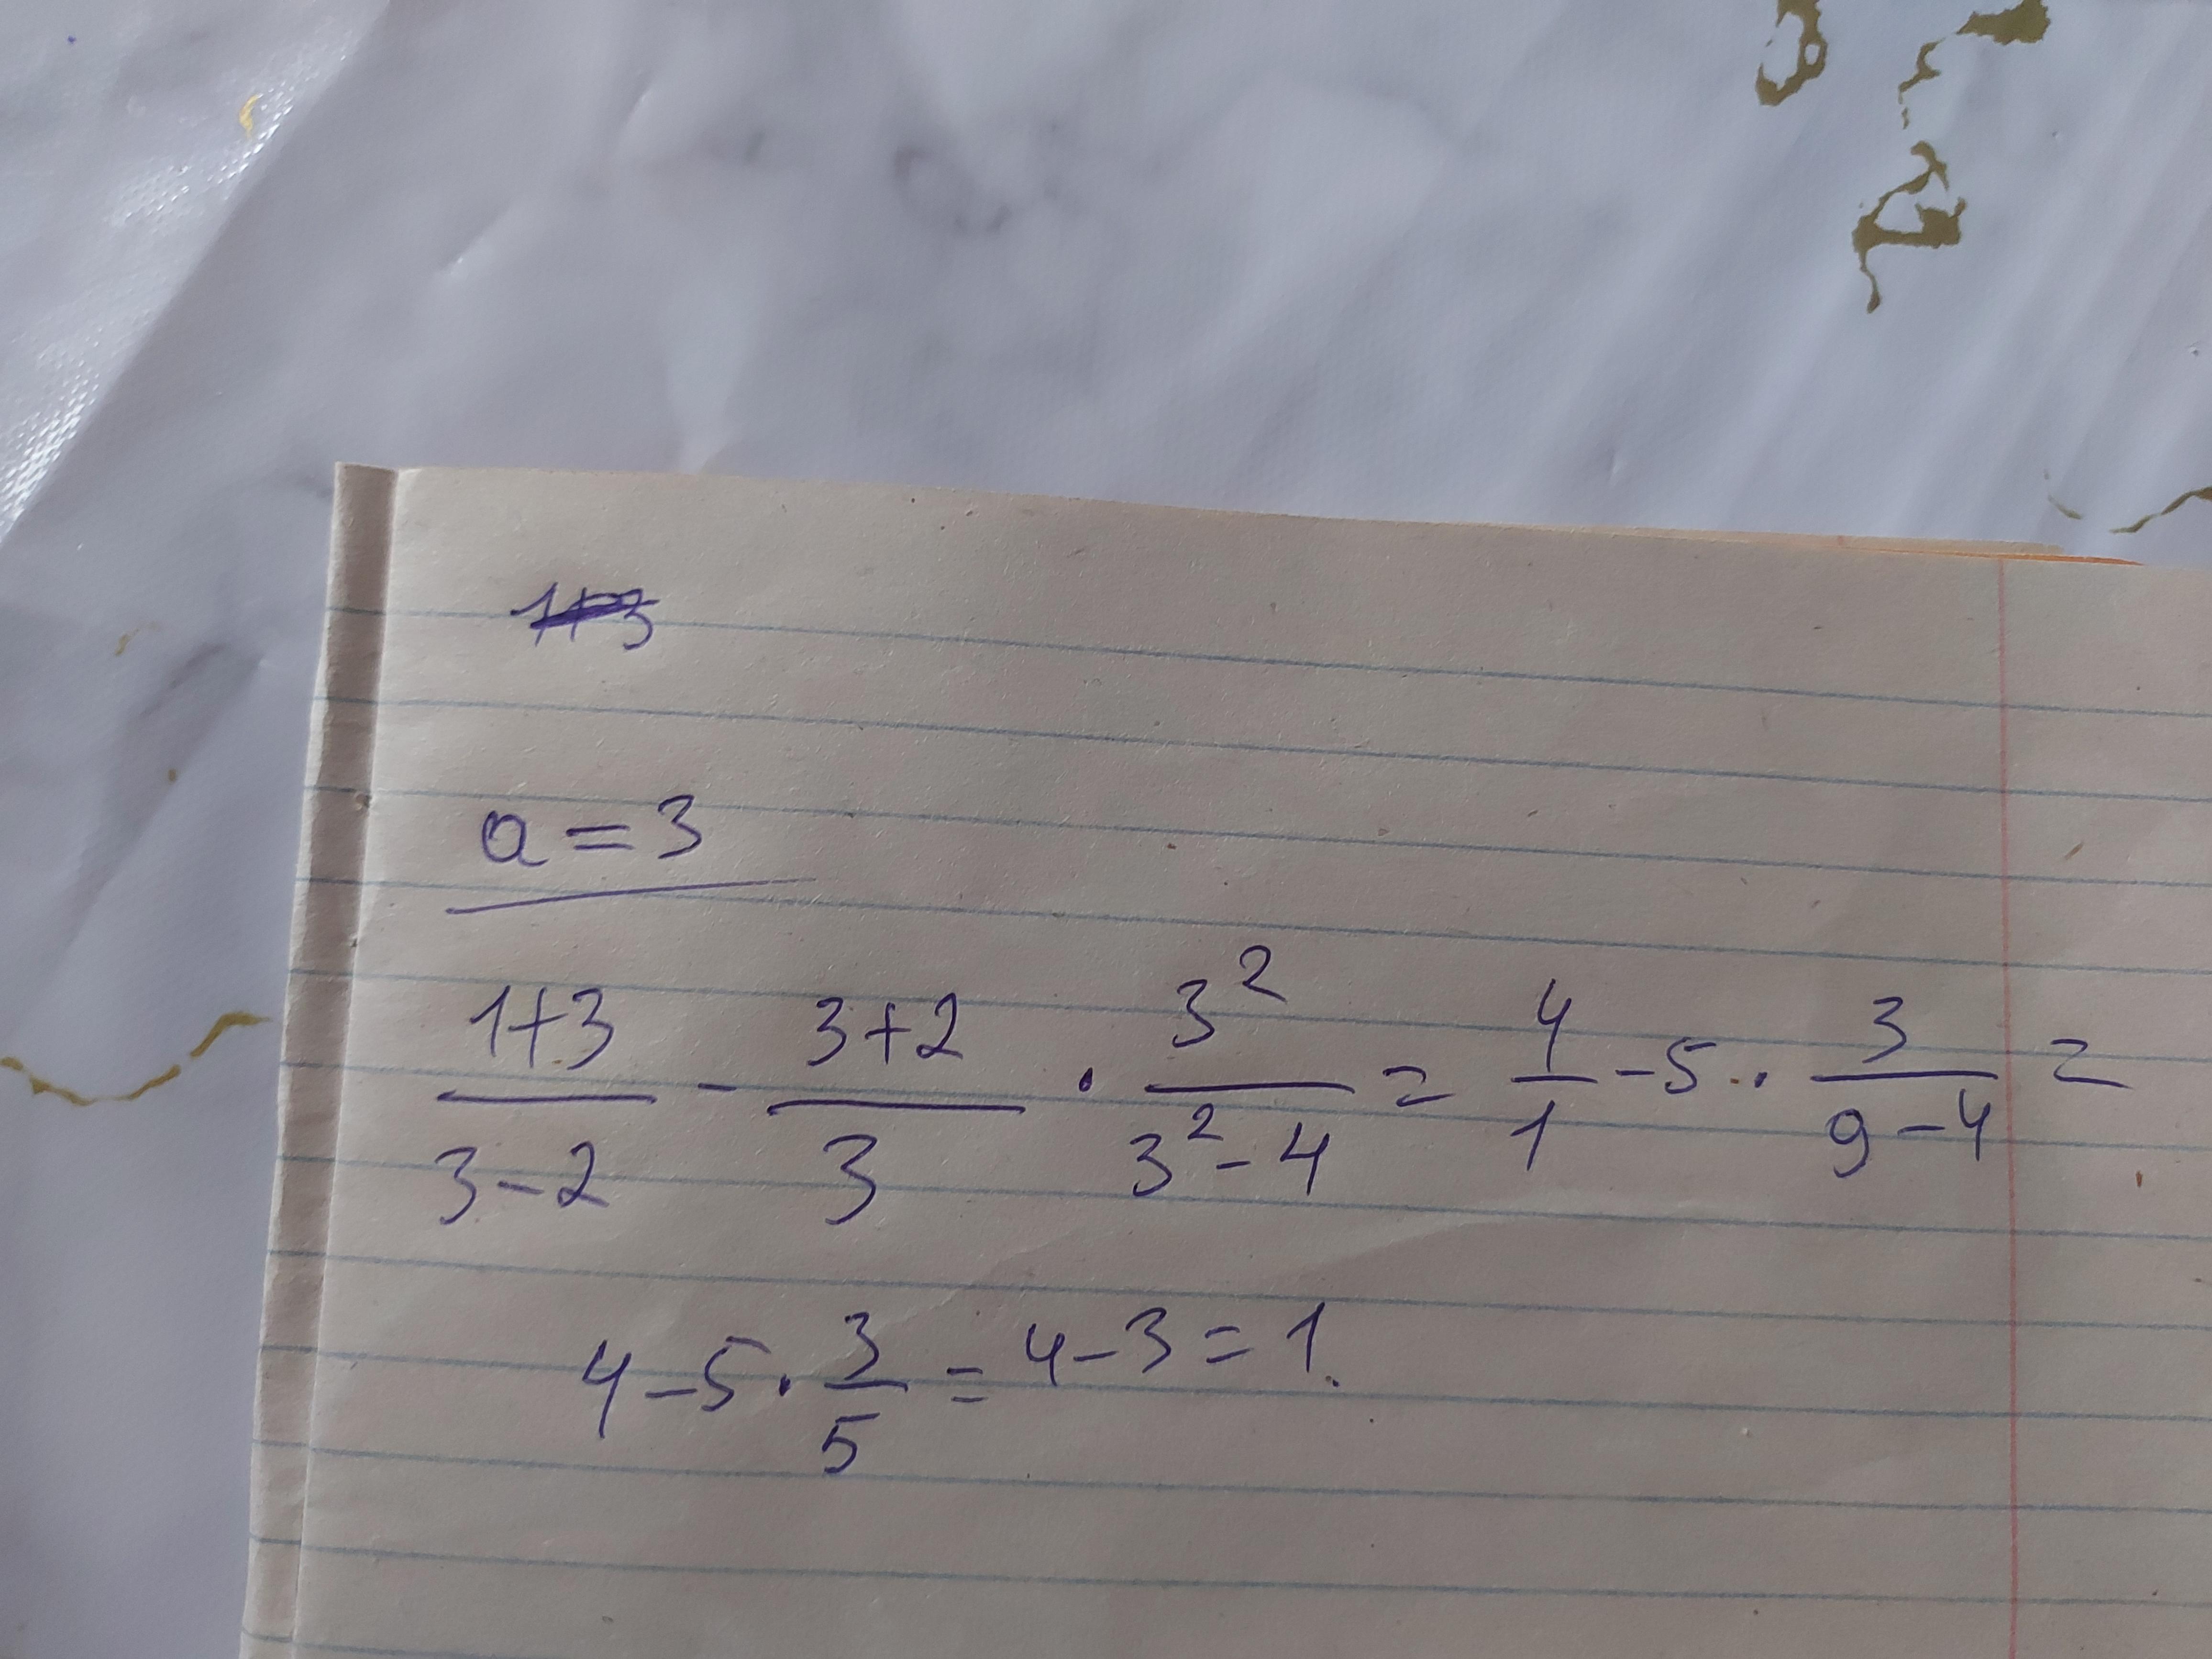 1+3
a = 3
(1+3)/(3-2) - (3+2)/3 · 3²/(3²-4) = 4/1 - 5 · 3/(9-4) =
4 - 5 · 3/5 = 4 - 3 = 1.